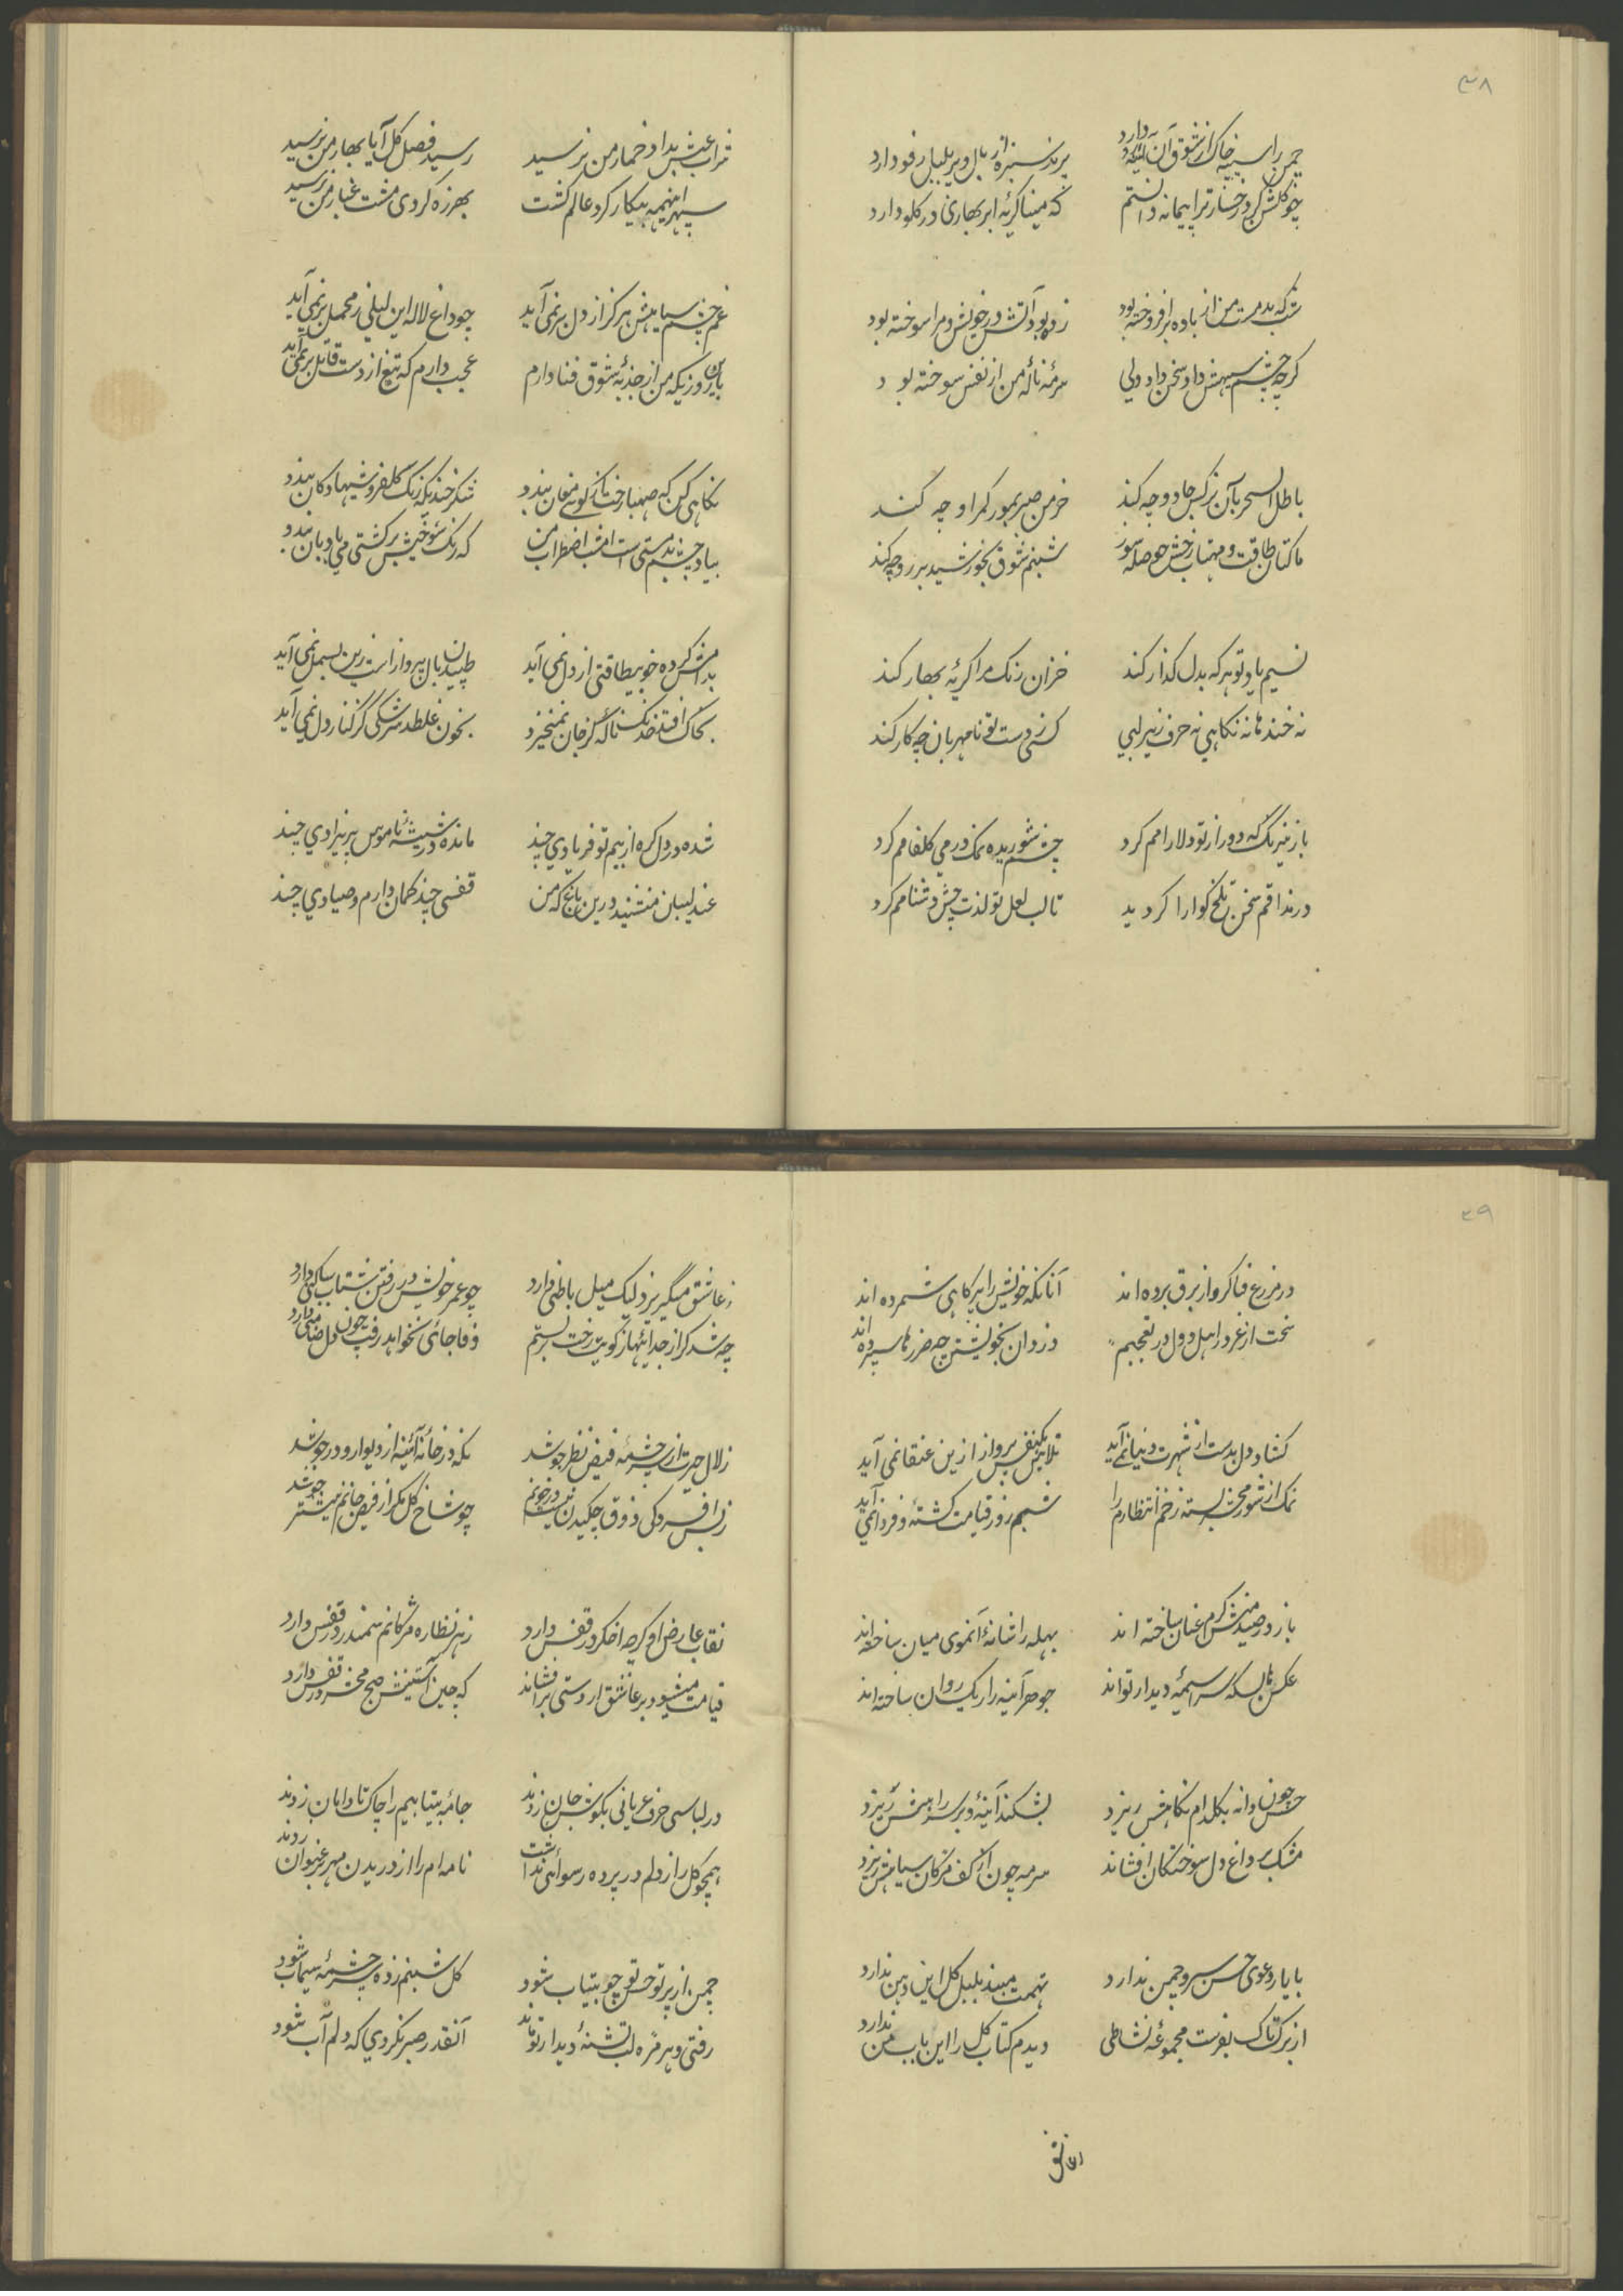 ۳۸
چمن را سینه چاک از شوق آن آئینه‌رو دارد
پرند سبزه از بال و پر بلبل رفو دارد
چو گلشن کرد رخسار ترا پیمانه دانستم
که مینا گریهٔ ابر بهاری در گلو دارد
شب که بدمست من از باده برافروخته بود
زده بود آتش در خویش و مرا سوخته بود
گرچه چشم سیهش داد سخن داد ولی
سرمهٔ نالهٔ من از نفس سوخته بود
باطل السحر بآن نرگس جادو چه کند
خرمن صبر بمور کمر او چه کند
ما کتان طاقت و مهتاب رخش حوصله سوز
شبنم شوق بخورشید برر و چه کند
نسیم یاد تو هر که بدل گذار کند
خزان رنک مرا گریهٔ بهار کند
نه خندهانه نگاهی نه حرف زیر لبی
کسی ز دست تو نامهربان چه کار کند
باز نیرنگ که دور از تو دلارامم کرد
چشم شوریده نمک در می گلفامم کرد
در مذاقم سخن تلخ گوارا گردید
تا لب لعل تو لذت چش دشنامم کرد
شراب عیش بداد خمار من نرسید
رسید فصل گل آیا بهار من نرسید
سپهر اینهمه بیکار کرد عالم گشت
بهرزه گردی مشت غبار من نرسید
غم چشم سیاهش هرگز از دل برنمی‌آید
چو داغ لاله این لیلی ز محمل برنمی‌آید
باین روزیکه من از جذبهٔ شوق فنا دارم
عجب دارم که تیغ از دست قاتل برنمی‌آید
نگاهی کن که صهبا رخت از کوی مغان بندد
شکرخندیکه رنگ گلفروشیها دکان بندد
بیاد چشم بدمستی است امشب اضطراب من
که رنگ شوخیش بر کشتی می بادبان بندد
بدامش کرده خو بیطاقتی از دل نمی‌آید
طپیدن بال پرواز است زین بسمل نمی‌آید
بخاک افتد خدنگ ناله گر از جان نمیخیزد
بخون غلطد سرشکی گز کنار دل نمی‌آید
شده در دل گره از بیم تو فریادی چند
مانده در شیشهٔ ناموس پریزادی چند
عندلیبان منشینید درین باغ که من
قفسی چند گمان دارم و صیادی چند
۳۹
در مزرع فنا گرو از برق برده‌اند
آنانکه خویش را پرکاهی شمرده‌اند
سخت از غرور اهل دول در تعجبم
دزدان بخویشتن چه ضررها سپرده‌اند
گشاد دل بدست از شهرت دنیا نمی‌آید
تلاش یکنفس پرواز ازین عنقا نمی‌آید
نمک از شور محشر بسته زخم انتظارم را
شبم روز قیامت گشته و فردا نمی‌آید
باز در صید منش گرم عنان ساخته‌اند
بهله را شانهٔ آنموی میان ساخته‌اند
عکس‌ها بسکه سراسیمهٔ دیدار تواند
جوهر آینه را ریک روان ساخته‌اند
حسن چون دانه بگل دام نگاهش ریزد
بشکند آینهٔ و بر سر راهش ریزد
مشک بر داغ دل سوختگان افشاند
سرمه چون از کف مژگان سیاهش ریزد
با یار دعوی حسن سرو چمن ندارد
تهمت مبند بلبل گل این دهن ندارد
از برگ تاک بفرست مجموعهٔ نشاطی
دیدم کتاب گل را این باب من ندارد
ز عاشق میگریزد لیک میل باطنی دارد
چو عمر خویش در رفتن شتاب ساکنی دارد
چه شد گر از جدائیها ز کویت رخت بربستم
وفا جائی نخواهد رفت چون دل ضامنی دارد
زلال حیرت از سرچشمهٔ فیض نظر جوشد
نگه در خانهٔ آئینه از دیوار و در جوشد
ز بس افسردگی ذوق چکیدن نیست در خونم
چو شاخ گل مگر از فیض جانم نیشتر جوشد
نقاب عارض او گرچه اخگر در قفس دارد
ز هر نظاره مژگانم سمندر در قفس دارد
قیامت میشود بر عاشق ار دستی برافشاند
که چین آستینش صبح محشر در قفس دارد
در لباسی حرف عریانی بگوش جان زدند
جامهٔ بیتابیم را چاک تا دامان زدند
همچو گل راز دلم در پرده رسوائی نداشت
نامه‌ام را از دریدن مهر بر عنوان زدند
چمن از پرتو حسن تو چو بیتاب شود
گل شبنم زده سرچشمهٔ سیماب شود
رفتی و هر مژه لب تشنهٔ دیدار تو ماند
آنقدر صبر نکردی که دلم آب شود